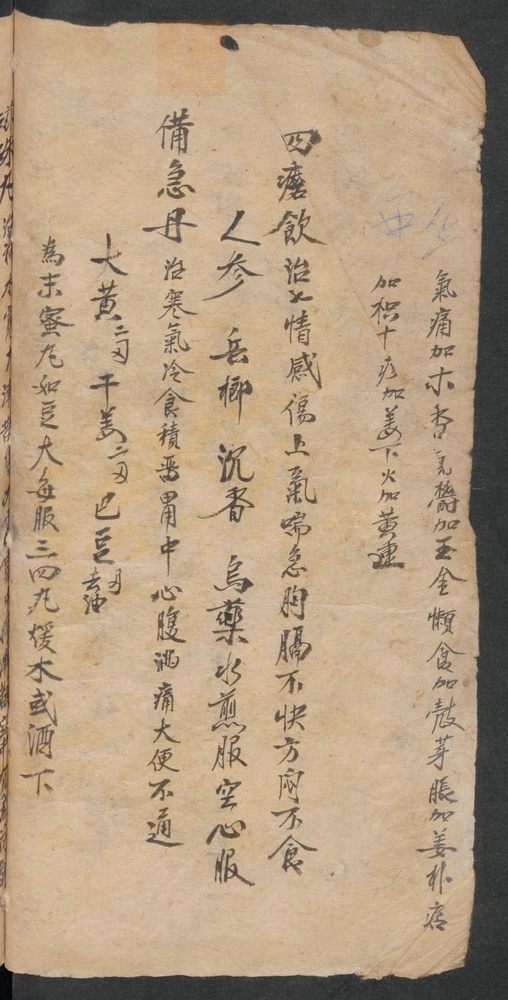 氣痛加木香氣欝加玉金懶食加殼芽脹加姜朴痞
加枳十疼加姜下火加黄連
四磨飲治七情感傷上氣喘急胸膈不快方悶不食
人参 兵榔 沉香 烏藥水煎服空心服
備急丹治寒氣冷食積畱胃中心腹滿痛大便不通
大黄二匁干姜二匁巴豆匁去油
為末蜜丸如豆大每服三四丸煖水或酒下